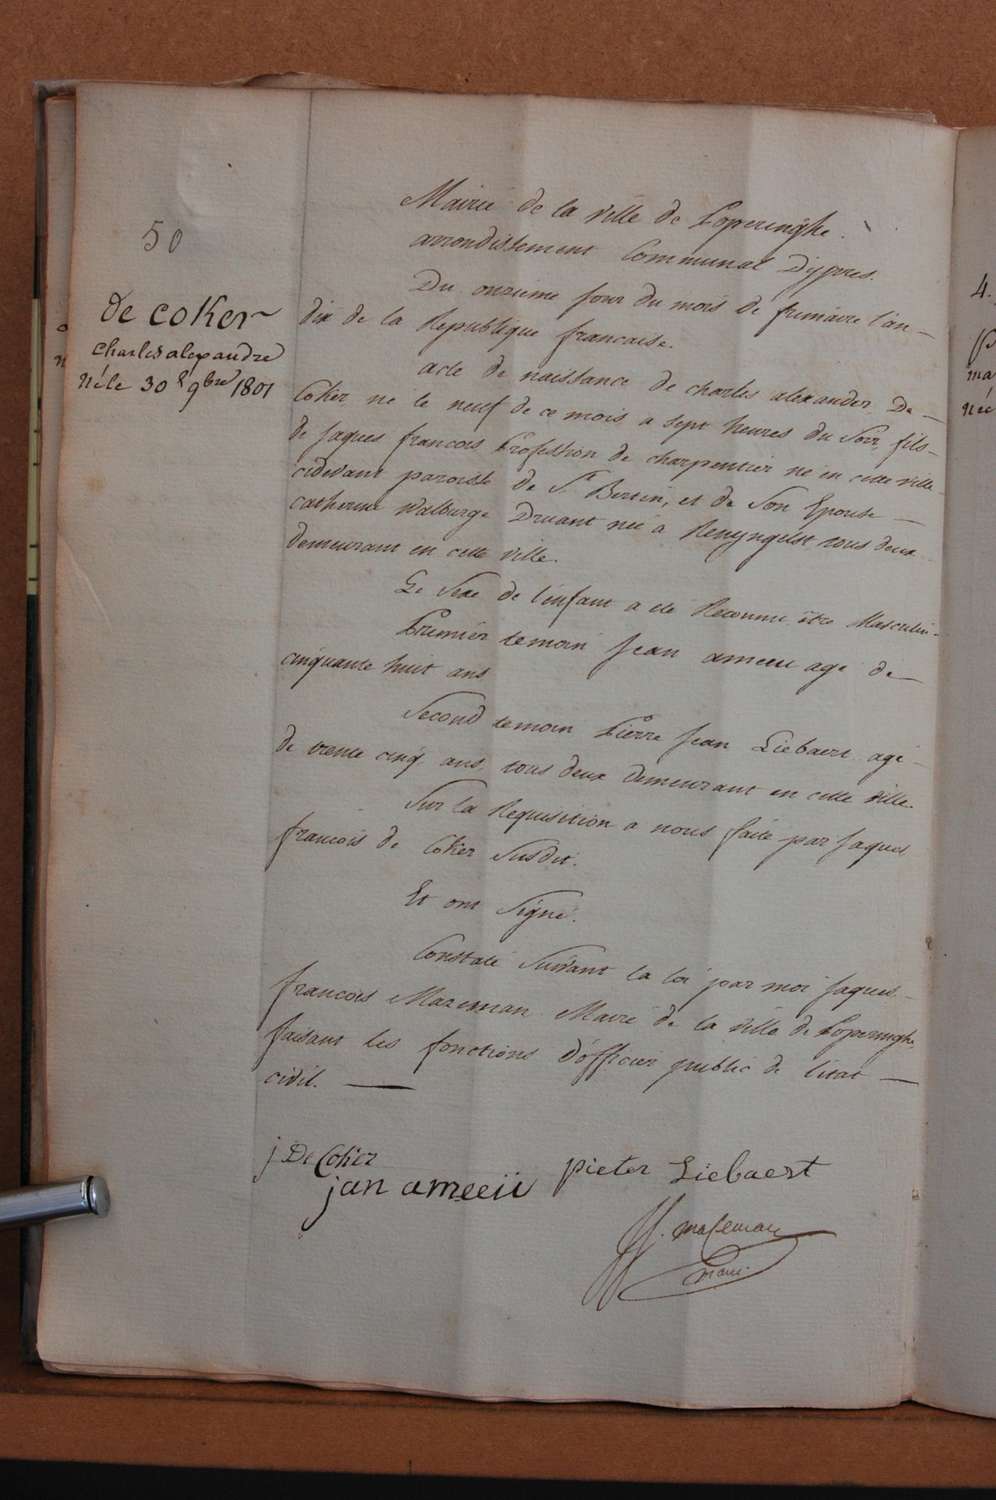 50
De Coker
charles alexandre
né le 30 9bre 1801
Mairie de la ville de Poperinghe.
arrondissement Communal D'ypres.
Du onzieme jour du mois de frimaire l'an
dix de la Republique francaise.
acte de naissance de charles alexander De
Coker ne le neuf de ce mois a sept heures du Soir, fils
de jaques francois Profession de charpentier né en cette ville
cidevant paroisse de St Bertin, et de Son Epouse
catherine Walburge Druant née à Renyngelst tous deux
demeurant en cette ville.
Le Sexe de l'enfant a eté Reconnu être Masculin
Premier temoin jean ameeu agé de
cinquante huit ans
Second temoin Pierre jean Liebaert agé
de trente cinq ans, tous deux demeurant en cette ville.
Sur la Requisition a nous faite par jaques
francois de Coker Susdit.
Et ont Signé.
Constaté Suivant la loi par moi jaques
francois Mazeman Maire de la ville de Poperinghe
faisant les fonctions d'officier public de l'etat
civil.
j De Coker
jan ameeii
pieter Liebaert
jf. Mazeman
maire
4.